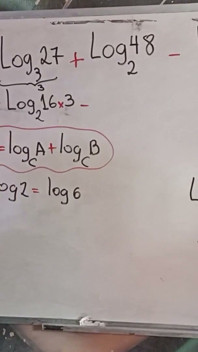 Log₃27 + Log₂48 -
3
Log₂16x3 -
= log_c A + log_c B
og2 = log6